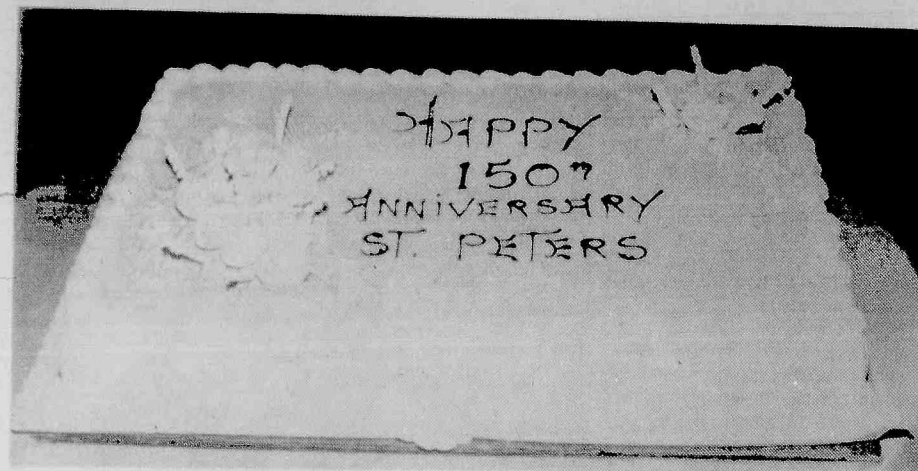 HAPPY
150TH
ANNIVERSARY
ST. PETERS